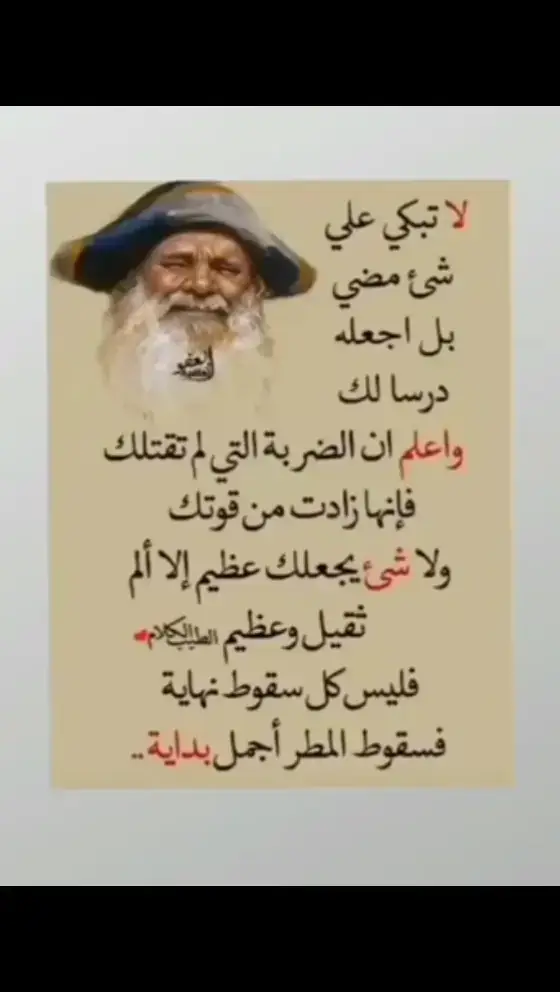 لا تبكي علي
شئ مضي
بل اجعله
درسا لك
واعلم ان الضربة التي لم تقتلك
فإنها زادت من قوتك
ولا شئ يجعلك عظيم إلا ألم
ثقيل وعظيم الطيب الكلام
فليس كل سقوط نهاية
فسقوط المطر أجمل بداية..